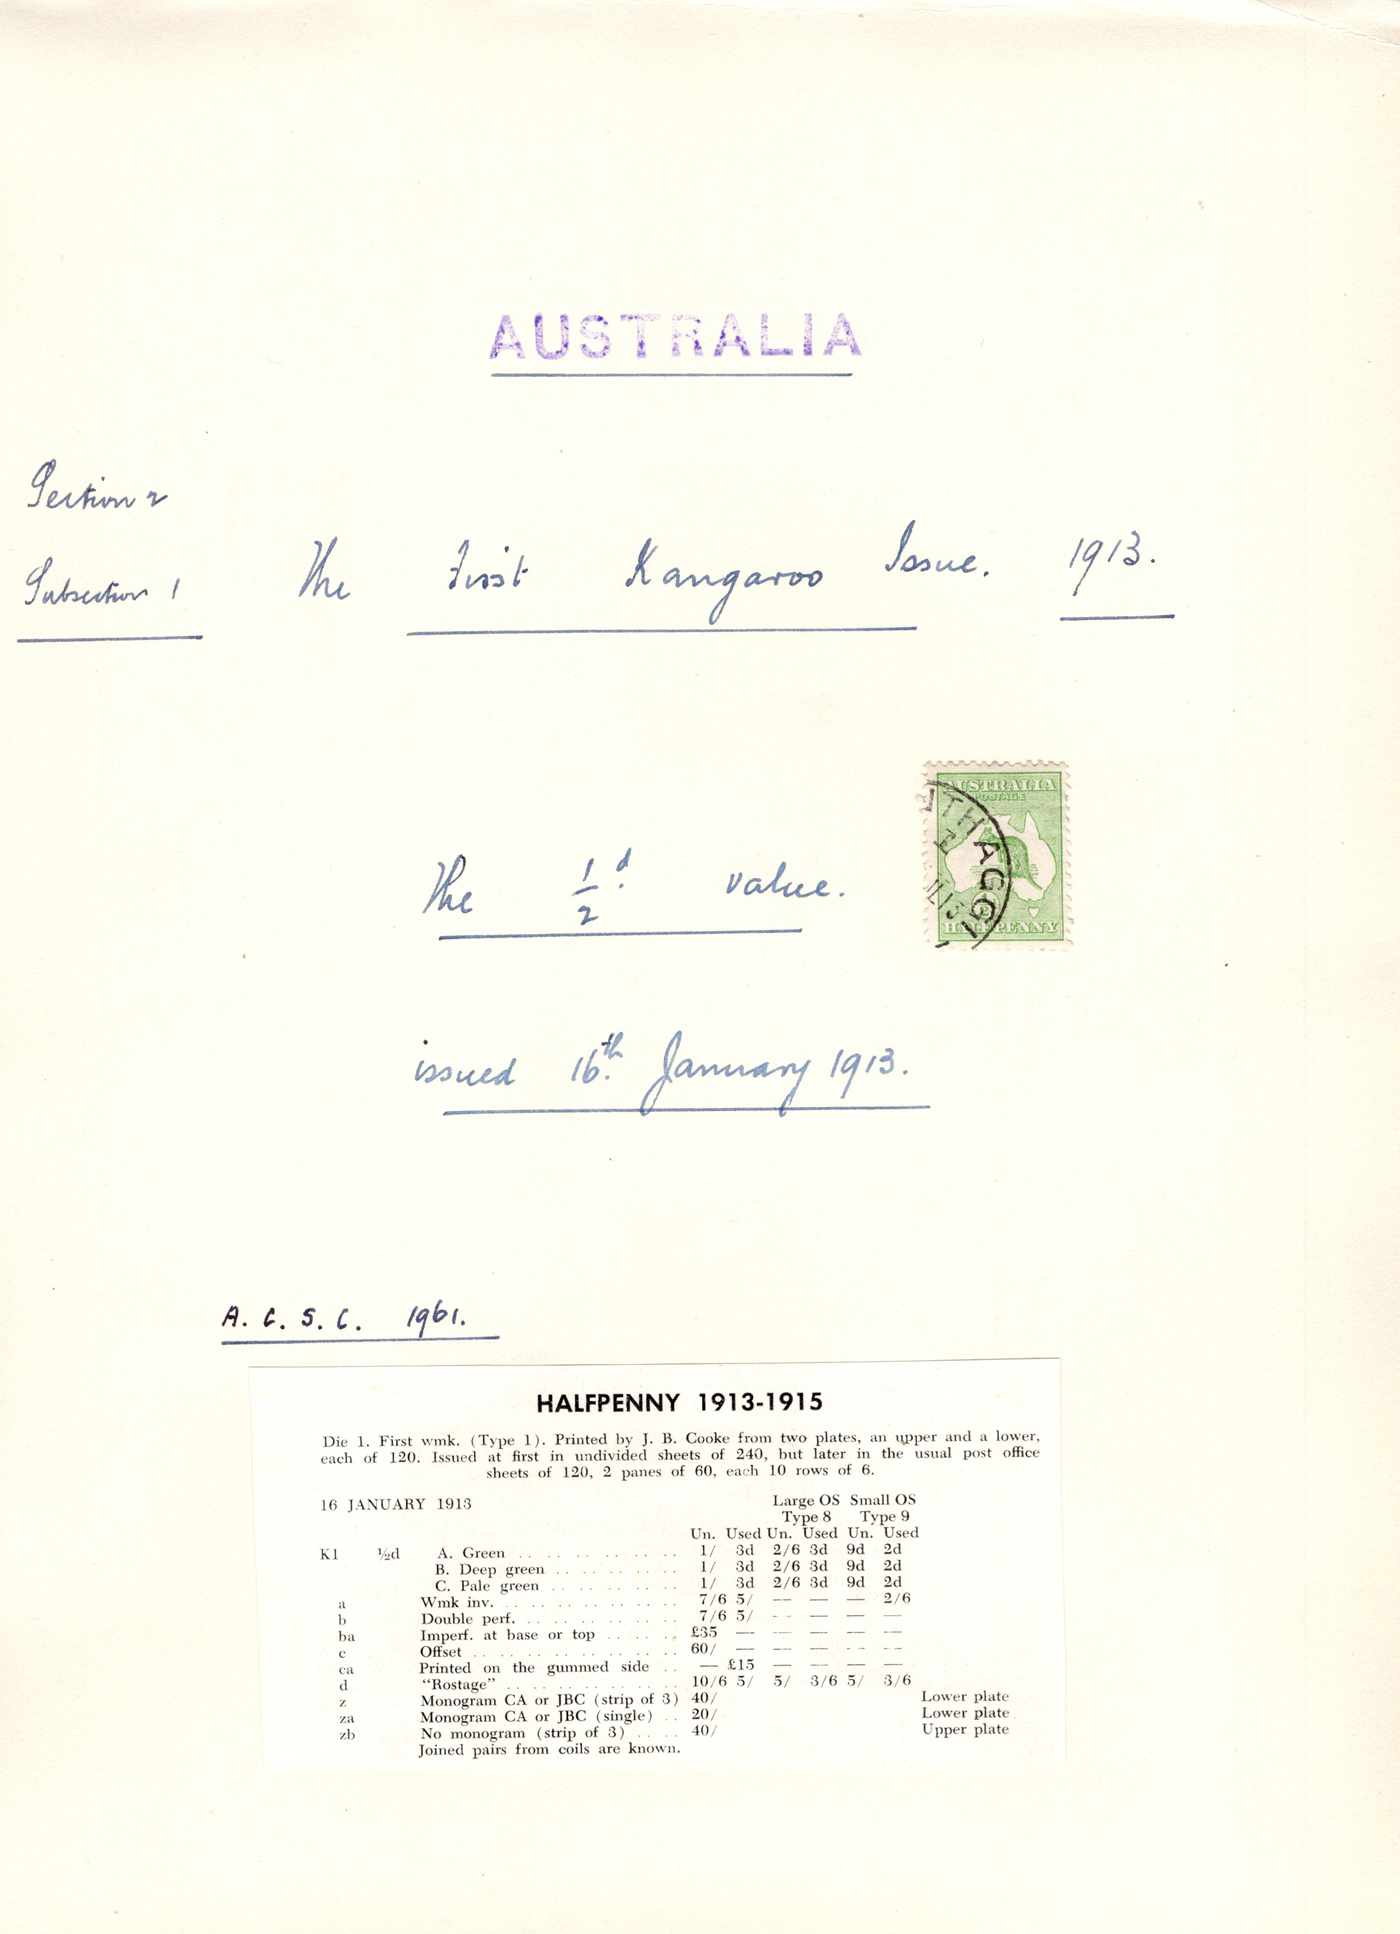 AUSTRALIA
Section 2
Subsection 1
The First Kangaroo Issue. 1913.
AUSTRALIA
POSTAGE
THAGGI
HALFPENNY
The 1/2 d. value.
issued 16th. January 1913.
A. C. S. C. 1961.
HALFPENNY 1913-1915
Die 1. First wmk. (Type 1). Printed by J. B. Cooke from two plates, an upper and a lower,
each of 120. Issued at first in undivided sheets of 240, but later in the usual post office
sheets of 120, 2 panes of 60, each 10 rows of 6.
16 JANUARY 1913 Large OS Small OS
Type 8 Type 9
Un. Used Un. Used Un. Used
K1 ½d A. Green . . . . . . . . . . . . 1/ 3d 2/6 3d 9d 2d
B. Deep green . . . . . . . . . 1/ 3d 2/6 3d 9d 2d
C. Pale green . . . . . . . . . 1/ 3d 2/6 3d 9d 2d
a Wmk inv. . . . . . . . . . . . . . 7/6 5/ — — — 2/6
b Double perf. . . . . . . . . . . . 7/6 5/ — — — —
ba Imperf. at base or top . . . . . £35 — — — — —
c Offset . . . . . . . . . . . . . . 60/ — — — — —
ca Printed on the gummed side . . — £15 — — — —
d "Rostage" . . . . . . . . . . . . 10/6 5/ 5/ 3/6 5/ 3/6
z Monogram CA or JBC (strip of 3) 40/ Lower plate
za Monogram CA or JBC (single) . . 20/ Lower plate
zb No monogram (strip of 3) . . . . 40/ Upper plate
Joined pairs from coils are known.